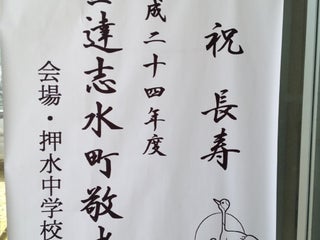 祝 長寿
成二十四年度
達志水町敬
会場・押水中学校